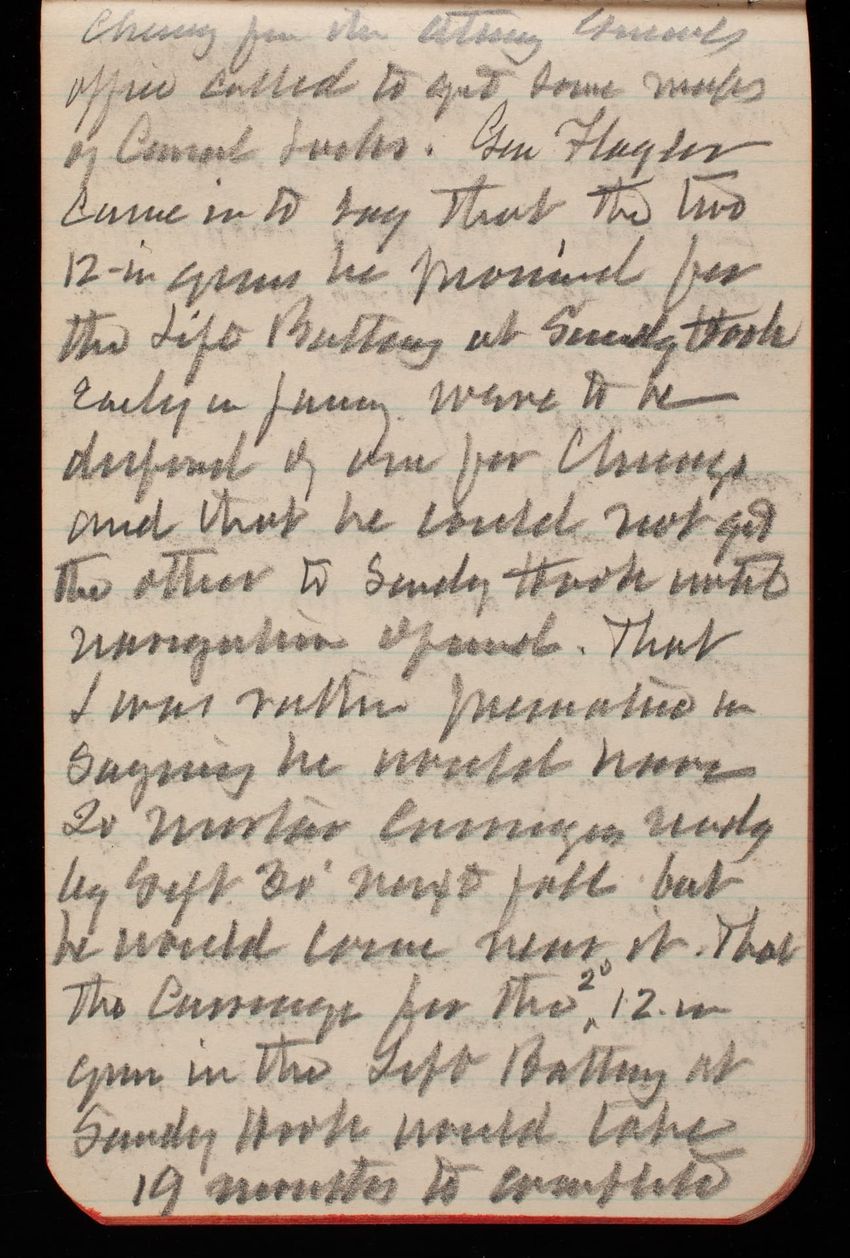 Cheney from the Attorney Generals
office called to get some maps
of Canal Locks. Gen Flagler
came in to say that the two
12-in guns he promised for
the Lift Battery at Sandy Hook
Early in were to be
disposed of one for Chicago
and that he could not get
the other to Sandy Hook until
navigation opened. That
I was rather premature in
saying he would have
20 mortar carriages ready
by Sept 30' next fall but
he would come near it. That
the Carriage for the 2d 12-in
gun in the Lift Battery at
Sandy Hook would take
19 months to complete